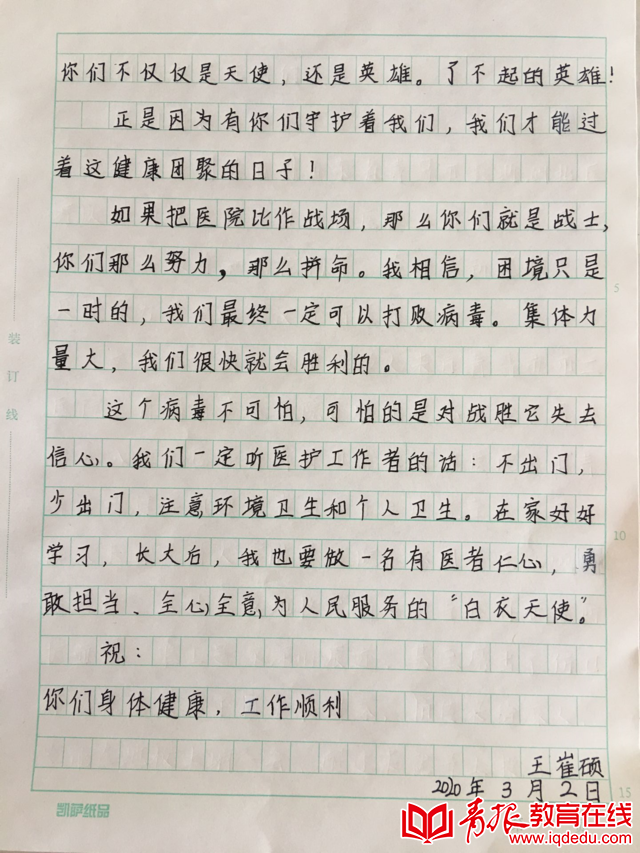 你们不仅仅是天使，还是英雄。了不起的英雄！
正是因为有你们守护着我们，我们才能过
着这健康团聚的日子！
如果把医院比作战场，那么你们就是战士，
你们那么努力，那么拼命。我相信，困境只是
一时的，我们最终一定可以打败病毒。集体力
量大，我们很快就会胜利的。
这个病毒不可怕，可怕的是对战胜它失去
信心。我们一定听医护工作者的话：不出门，
少出门，注意环境卫生和个人卫生。在家好好
学习，长大后，我也要做一名有医者仁心，勇
敢担当、全心全意为人民服务的“白衣天使”。
祝：
你们身体健康，工作顺利
王崔硕
2020年3月2日
装订线
5
10
15
凯萨纸品
青报教育在线
www.iqdedu.com